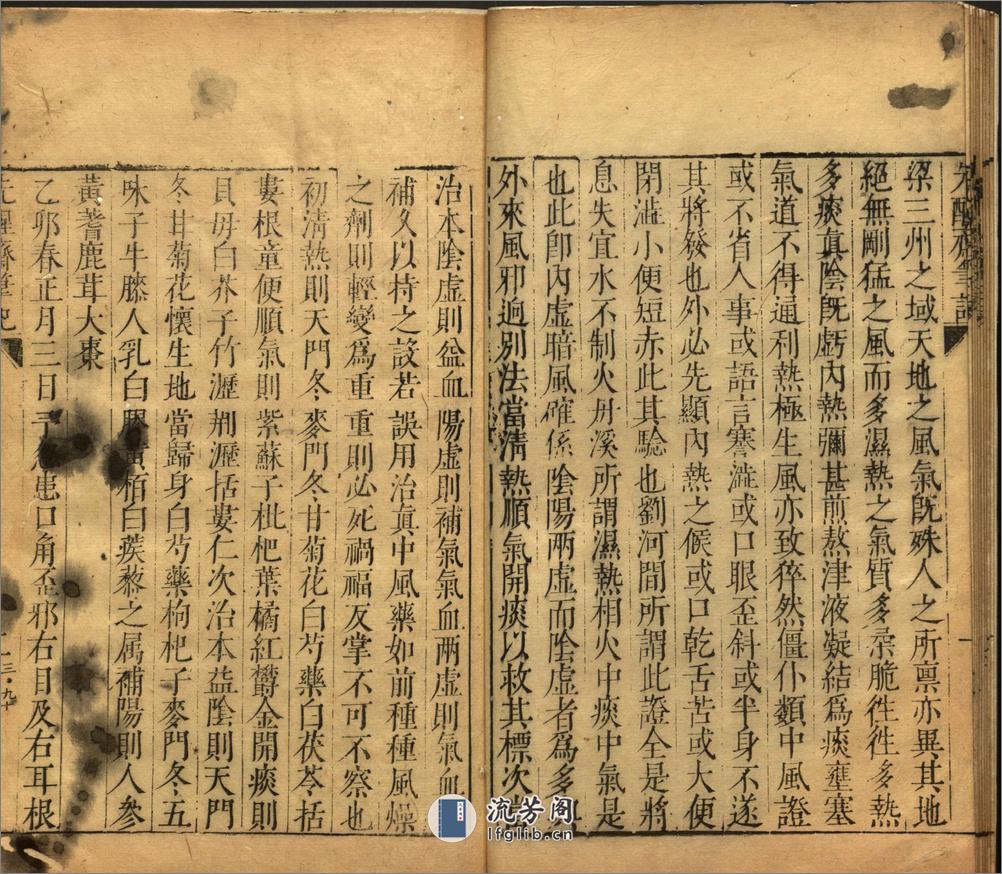 梁三州之域天地之風氣旣殊人之所禀亦異其地
絕無剛猛之風而多濕熱之氣質多柔脆徃徃多熱
多痰眞陰旣虧內熱彌甚煎熬津液凝結爲痰壅塞
氣道不得通利熱極生風亦致猝然僵仆類中風證
或不省人事或語言蹇澁或口眼歪斜或半身不遂
其將發也外必先顯內熱之候或口乾舌苦或大便
閉澁小便短赤此其驗也劉河間所謂此證全是將
息失宜水不制火丹溪所謂濕熱相火中痰中氣是
也此卽內虛暗風確係陰陽兩虛而陰虛者爲多與
外來風邪逈別法當淸熱順氣開痰以救其標次當
治本陰虛則益血陽虛則補氣氣血兩虛則氣血
補久以持之設若誤用治眞中風藥如前種種風燥
之劑則輕變爲重重則必死禍福反掌不可不察也
初淸熱則天門冬麥門冬甘菊花白芍藥白茯苓括
蔞根童便順氣則紫蘇子枇杷葉橘紅欝金開痰則
貝母白芥子竹瀝荆瀝括蔞仁次治本益陰則天門
冬甘菊花懷生地當歸身白芍藥枸杞子麥門冬五
味子牛膝人乳白膠黃栢白蒺藜之属補陽則人參
黃蓍鹿茸大棗
乙卯春正月三日予忽患口角歪邪右目及右耳根
流芳阁
lfglib.cn